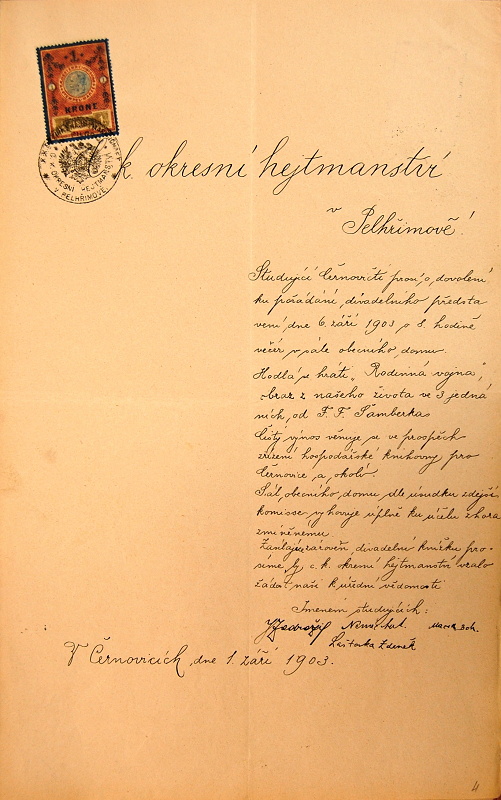 1
KRONE
OKRESNÍ HEJTMANSTVÍ
V PELHŘIMOVĚ
k okresní hejtmanství
v
Pelhřimově!
Studující Černovičtí prosí, o, dovolení
ku pořádání, divadelního předsta
vení, dne 6. září 1903 o 8. hodině
večer v sále obecního, domu.
Hodlá se hráti „Rodinná vojna",
obraz z našeho života ve 3 jedná
ních, od F. F. Šamberka
Čistý výnos věnuje se ve prospěch
zřízení hospodářské knihovny pro
Černovice a, okolí.
Sál, obecního, domu, dle úsudku zdejší
komisse, vyhovuje úplně ku účelu zhora
zmíněnému.
Zasílajíce zároveň, divadelní knížku pro-
síme, by c. k. okresní hejtmanství vzalo
žádost naši k úřední vědomosti
Jménem studujících:
Laštovka Zdeněk
V Černovicích, dne 1. září 1903.
4